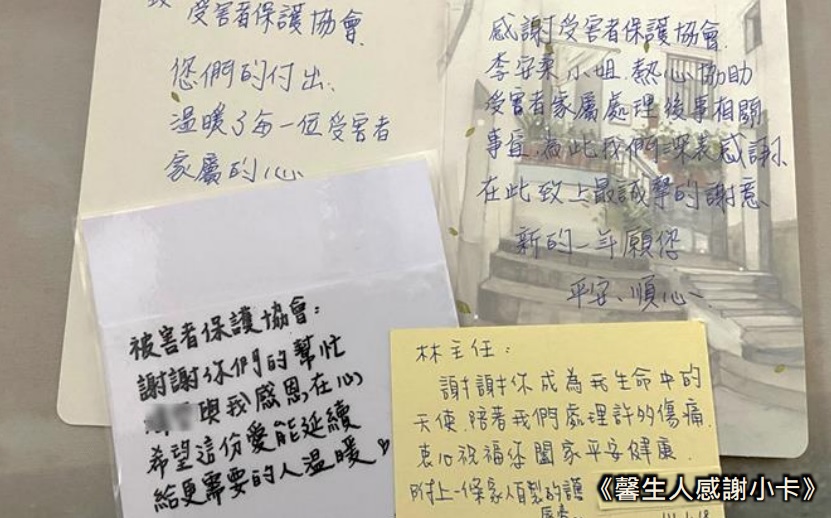 致 受害者保護協會
您們的付出
溫暖了每一位受害者
家屬的心
感謝受害者保護協會
李安柔小姐.熱心協助
受害者家屬處理後事相關
事宜,為此我們深表感謝
在此致上最誠摯的謝意
新的一年願您
平安、順心
被害者保護協會:
謝謝你們的幫忙
與我感恩在心
希望這份愛能延續
給更需要的人溫暖♡
林主任:
謝謝你成為我生命中的
天使.陪著我們處理許多傷痛
衷心祝福您闔家平安健康.
附上一條家人自製的護
《馨生人感謝小卡》